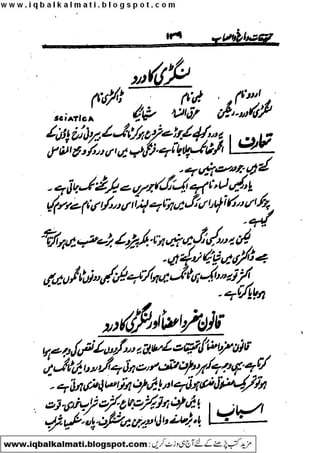 www.iqbalkalmati.blogspot.com
تحقیقات علاج و اعصاب ۱۳۹
لنگڑی کا درد
اردو نام طبی نام ڈاکٹری نام
لنگڑی کا درد، رینگن عرق النسا شیاٹیکا
SCIATICA
تعارف یہ درد کولہے کے جوڑ سے شروع ہو کر ٹانگ کے بیرونی رخ پاؤں کے
انگوٹھا تک چلا جاتا ہے، فرنگی طب میں اس درد کو وجع المفاصل
کہتے ہیں جو درست نہیں ہے۔
یاد رکھیں نساء نام ہے ایک رگ کا جو سرین سے لیکر ٹخنے تک جاتی ہے۔
چونکہ اس درد کا اظہار اس رگ میں ہوتا ہے لہٰذا اس درد کو اسی نام سے موسوم کیا
گیا ہے۔
لیکن یہ درد کسی رگ میں نہیں ہوتا، بلکہ پیڑو کے بڑے عصب میں ہوا کرتا ہے
جسے ڈاکٹری میں شیاٹیکا نرو کہتے ہیں۔
اکثر تو یہ درد ایک ہی ٹانگ میں ہوا کرتا ہے لیکن کبھی دونوں ٹانگوں میں بھی
ہو جایا کرتا ہے۔
قانون مفرد اعضا اور لنگڑی کا درد
قانون مفرد اعضا کی تحقیقات کے مطابق یہ درد گردوں کے نقص کی وجہ سے ہوا
کرتا ہے، یہی وجہ ہے کہ ہر دو طرف مختلف صورت ہوتی ہے اگر درد دائیں ٹانگ میں
ہو تو تحریک عضلاتی غدی ہوتی ہے اور بائیں طرف ہو تو اعصابی غدی ہوتی ہے۔
اسباب بائیں طرف ہو تو کثرت جماع، کثرت شراب خوری، قوت
باہ بڑھانے والی ادویہ جن میں شنگرف، پارہ، سنکھیا، شراب
مزید کتب پڑھنے کے لئے آج ہی وزٹ کریں : www.iqbalkalmati.blogspot.com